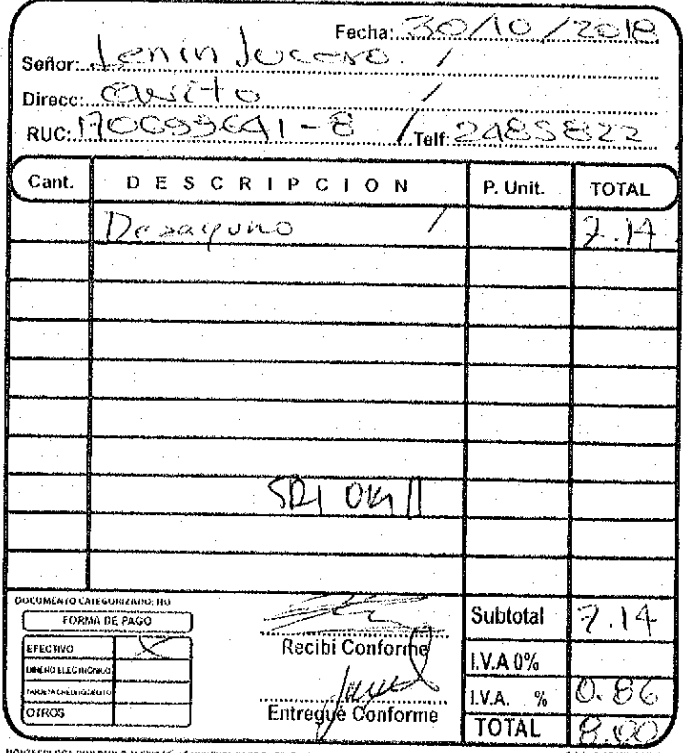 Fecha: 30/10/2018
Señor: Lenin Lucero /
Direcc: Quito /
RUC: 170099641-8 / Telf: 2485822
Cant. DESCRIPCION P. Unit. TOTAL
Desayuno / 7.14
SRI OK
DOCUMENTO CATEGORIZADO: NO
FORMA DE PAGO
EFECTIVO X
DINERO ELECTRONICO
TARJETA CREDITO/DEBITO
OTROS
Recibi Conforme
Entregue Conforme
Subtotal 7.14
I.V.A 0%
I.V.A. % 0.86
TOTAL 8.00